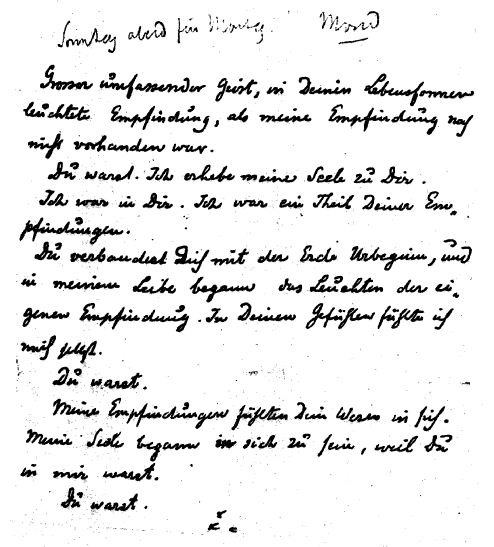 Sonntag abend für Montag. Mond
Grosser umfassender Geist, in Deinen Lebensformen
leuchtete Empfindung, als meine Empfindung noch
nicht vorhanden war.
Du warst. Ich erhebe meine Seele zu Dir.
Ich war in Dir. Ich war ein Theil Deiner Em-
pfindungen.
Du verbandest Dich mit der Erde Urbeginn, und
in meinem Leibe begann das Leuchten der ei-
genen Empfindung. In Deinen Gefühlen fühlte ich
mich selbst.
Du warst.
Meine Empfindungen fühlten Dein Wesen in sich.
Meine Seele begann in sich zu sein, weil Du
in mir warst.
Du warst.